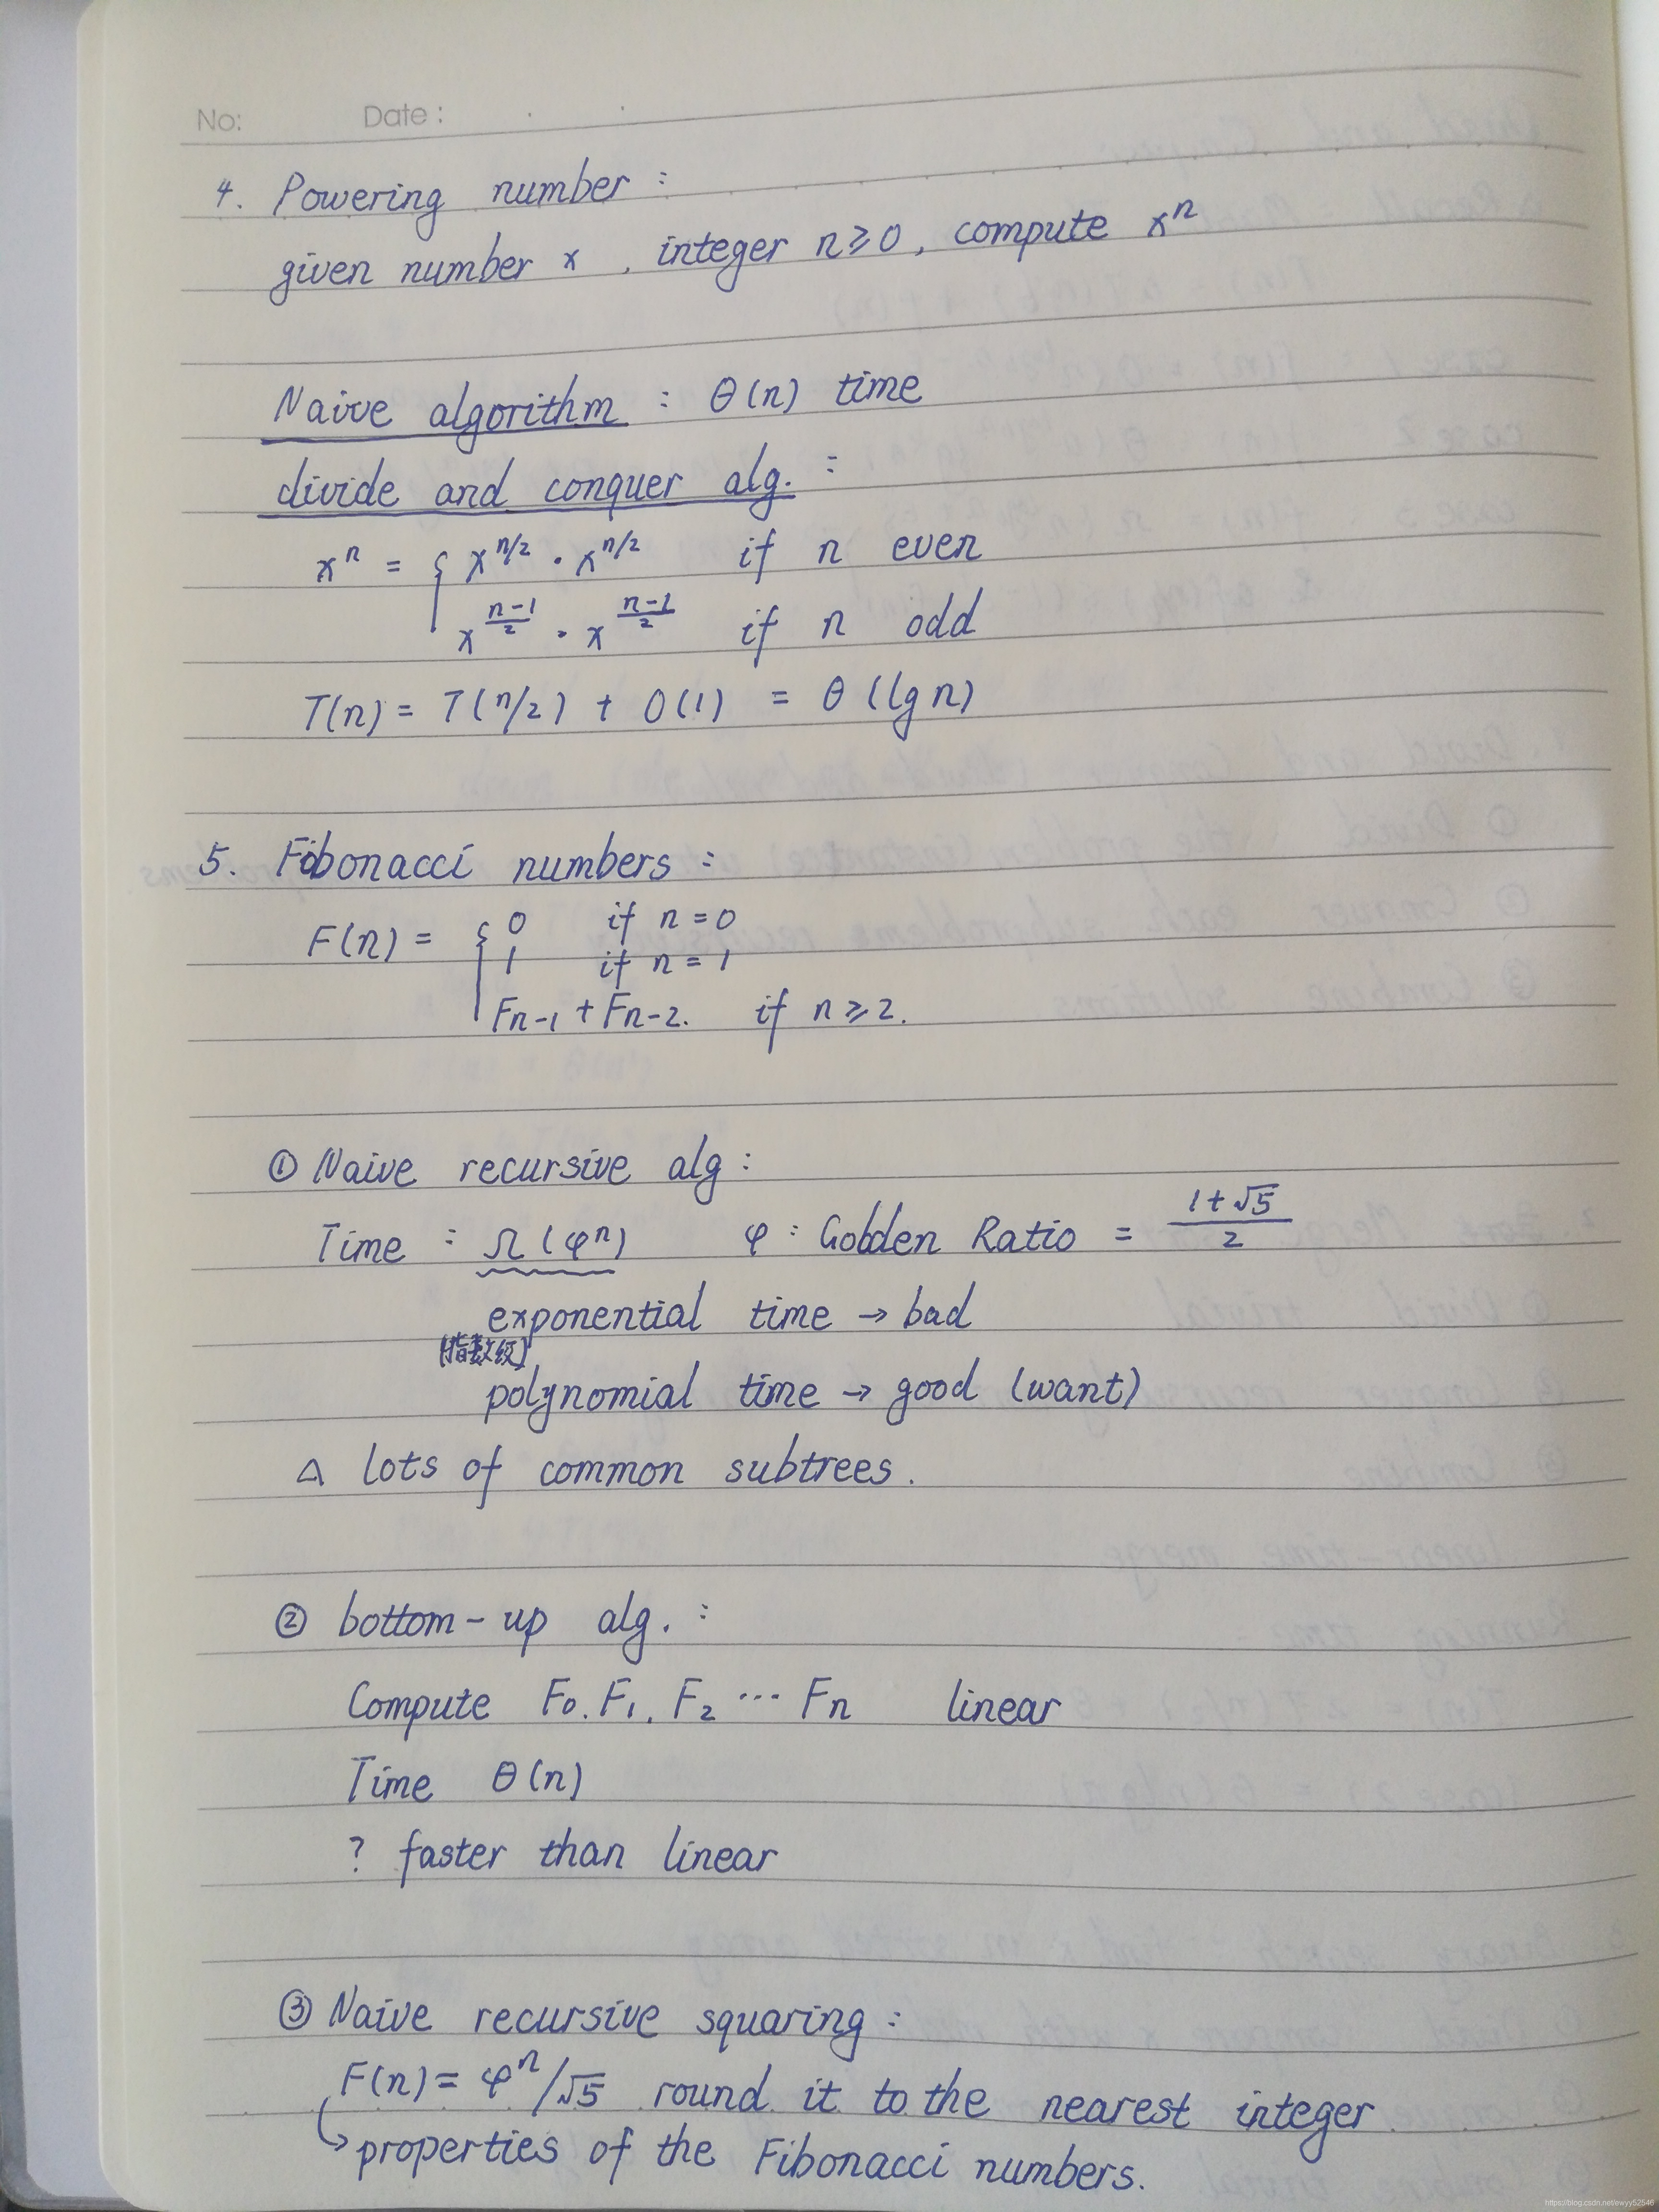 No:    Date :
4. Powering number :
given number x , integer n⩾0, compute xⁿ
Naive algorithm : θ(n) time
divide and conquer alg. :
xⁿ = { x^{n/2} · x^{n/2} if n even
x^{\frac{n-1}{2}} · x^{\frac{n-1}{2}} if n odd
T(n) = T(n/2) + O(1) = θ(lg n)
5. Fibonacci numbers :
F(n) = { 0 if n=0
1 if n=1
Fn-1 + Fn-2. if n⩾2.
① Naive recursive alg :
Time : Ω(φⁿ) φ : Golden Ratio = \frac{1+√5}{2}
exponential time → bad
(指数级)
polynomial time → good (want)
△ lots of common subtrees.
② bottom-up alg. :
Compute F₀. F₁. F₂ ⋯ Fn linear
Time θ(n)
? faster than linear
③ Naive recursive squaring :
F(n) = φⁿ/√5 round it to the nearest integer
↳ properties of the Fibonacci numbers.